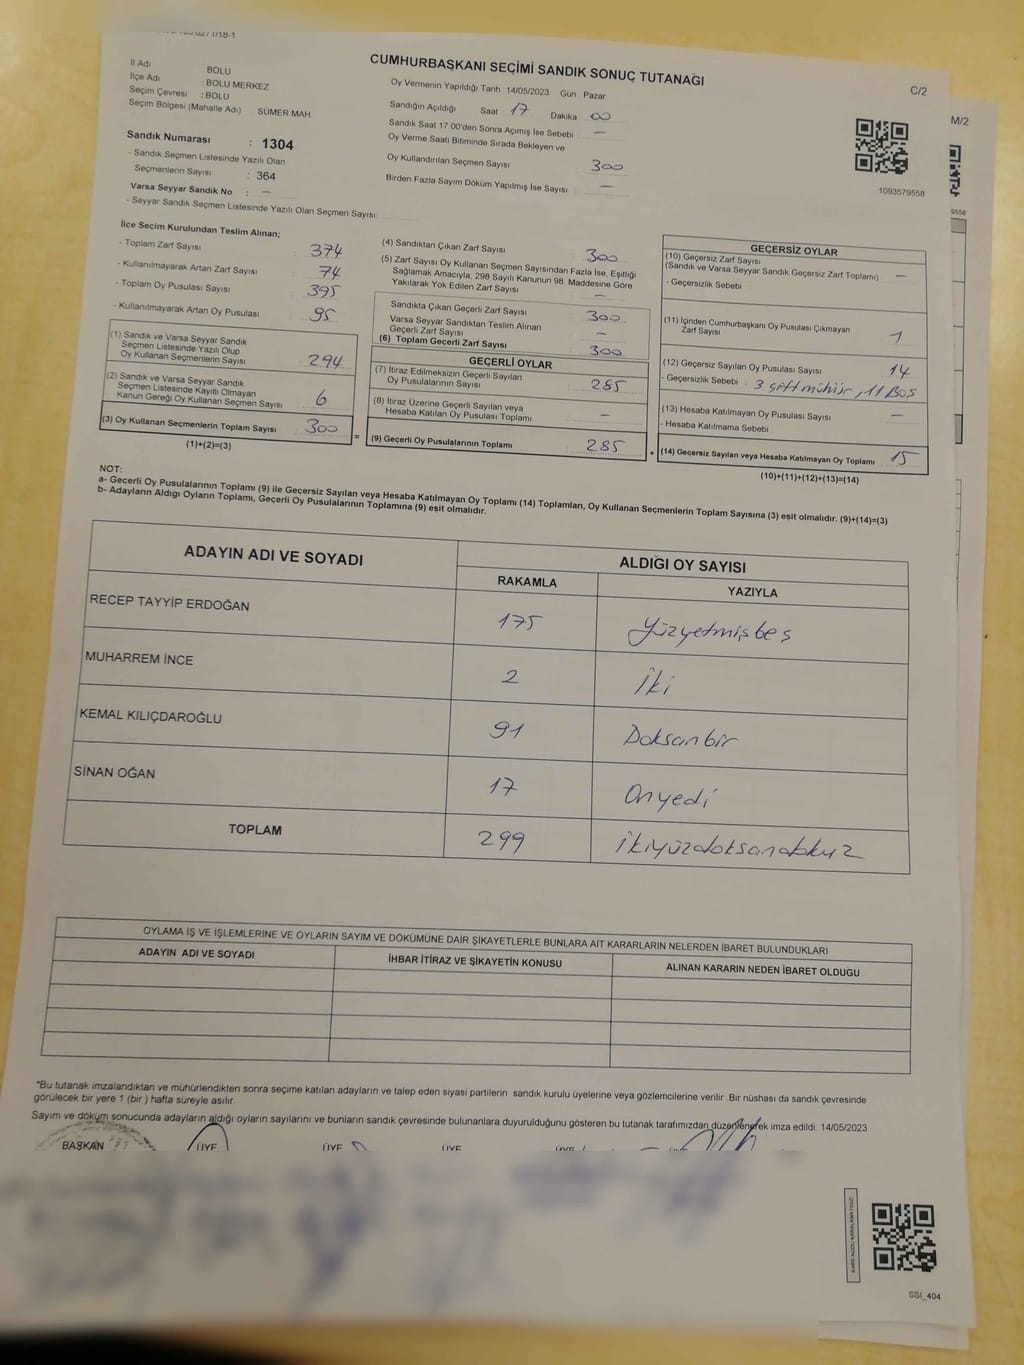 CUMHURBAŞKANI SEÇİMİ SANDIK SONUÇ TUTANAĞI
C/2
M/2
İl Adı BOLU
İlçe Adı BOLU MERKEZ
Seçim Çevresi : BOLU
Seçim Bölgesi (Mahalle Adı) SÜMER MAH
Sandık Numarası : 1304
- Sandık Seçmen Listesinde Yazılı Olan
Seçmenlerin Sayısı : 364
Varsa Seyyar Sandık No : —
- Seyyar Sandık Seçmen Listesinde Yazılı Olan Seçmen Sayısı
Oy Vermenin Yapıldığı Tarih 14/05/2023 Gün Pazar
Sandığın Açıldığı Saat 17 Dakika 00
Sandık Saat 17 00'den Sonra Açımış İse Sebebi —
Oy Verme Saati Bitiminde Sırada Bekleyen ve
Oy Kullandırılan Seçmen Sayısı 300
Birden Fazla Sayım Döküm Yapılmış İse Sayısı —
1093579558
İlçe Seçim Kurulundan Teslim Alınan;
- Toplam Zarf Sayısı 374
- Kullanılmayarak Artan Zarf Sayısı 74
- Toplam Oy Pusulası Sayısı 395
- Kullanılmayarak Artan Oy Pusulası 95
(1) Sandık ve Varsa Seyyar Sandık
Seçmen Listesinde Yazılı Olup
Oy Kullanan Seçmenlerin Sayısı 294
(2) Sandık ve Varsa Seyyar Sandık
Seçmen Listesinde Kayıtlı Olmayan
Kanun Gereği Oy Kullanan Seçmen Sayısı 6
(3) Oy Kullanan Seçmenlerin Toplam Sayısı 300
(1)+(2)=(3)
=
(4) Sandıktan Çıkan Zarf Sayısı 300
(5) Zarf Sayısı Oy Kullanan Seçmen Sayısından Fazla İse, Eşitliği
Sağlamak Amacıyla, 298 Sayılı Kanunun 98. Maddesine Göre
Yakılarak Yok Edilen Zarf Sayısı —
Sandıkta Çıkan Geçerli Zarf Sayısı 300
Varsa Seyyar Sandıktan Teslim Alınan
Geçerli Zarf Sayısı —
(6) Toplam Geçerli Zarf Sayısı 300
GEÇERLİ OYLAR
(7) İtiraz Edilmeksizin Geçerli Sayılan
Oy Pusulalarının Sayısı 285
(8) İtiraz Üzerine Geçerli Sayılan veya
Hesaba Katılan Oy Pusulası Toplamı —
(9) Geçerli Oy Pusulalarının Toplamı 285
+
GEÇERSİZ OYLAR
(10) Geçersiz Zarf Sayısı
(Sandık ve Varsa Seyyar Sandık Geçersiz Zarf Toplamı) —
- Geçersizlik Sebebi
(11) İçinden Cumhurbaşkanı Oy Pusulası Çıkmayan
Zarf Sayısı 1
(12) Geçersiz Sayılan Oy Pusulası Sayısı 14
- Geçersizlik Sebebi : 3 çift mühür, 11 Boş
(13) Hesaba Katılmayan Oy Pusulası Sayısı —
- Hesaba Katılmama Sebebi
(14) Geçersiz Sayılan veya Hesaba Katılmayan Oy Toplamı 15
(10)+(11)+(12)+(13)=(14)
NOT:
a- Gecerli Oy Pusulalarının Toplamı (9) ile Geçersiz Sayılan veya Hesaba Katılmayan Oy Toplamı (14) Toplamları, Oy Kullanan Seçmenlerin Toplam Sayısına (3) eşit olmalıdır. (9)+(14)=(3)
b- Adayların Aldığı Oyların Toplamı, Geçerli Oy Pusulalarının Toplamına (9) eşit olmalıdır.
ADAYIN ADI VE SOYADI ALDIĞI OY SAYISI
RAKAMLA YAZIYLA
RECEP TAYYİP ERDOĞAN 175 Yüzyetmişbeş
MUHARREM İNCE 2 İki
KEMAL KILIÇDAROĞLU 91 Doksanbir
SİNAN OĞAN 17 Onyedi
TOPLAM 299 İkiyüzdoksandokuz
OYLAMA İŞ VE İŞLEMLERİNE VE OYLARIN SAYIM VE DÖKÜMÜNE DAİR ŞİKAYETLERLE BUNLARA AİT KARARLARIN NELERDEN İBARET BULUNDUKLARI
ADAYIN ADI VE SOYADI İHBAR İTİRAZ VE ŞİKAYETİN KONUSU ALINAN KARARIN NEDEN İBARET OLDUGU
*Bu tutanak imzalandıktan ve mühürlendikten sonra seçime katılan adayların ve talep eden siyasi partilerin sandık kurulu üyelerine veya gözlemcilerine verilir .Bir nüshası da sandık çevresinde
görülecek bir yere 1 (bir ) hafta süreyle asılır.
Sayım ve döküm sonucunda adayların aldığı oyların sayılarını ve bunların sandık çevresinde bulunanlara duyurulduğunu gösteren bu tutanak tarafımızdan düzenlenerek imza edildi. 14/05/2023
BAŞKAN ÜYE ÜYE ÜYE ÜYE
SSI_404